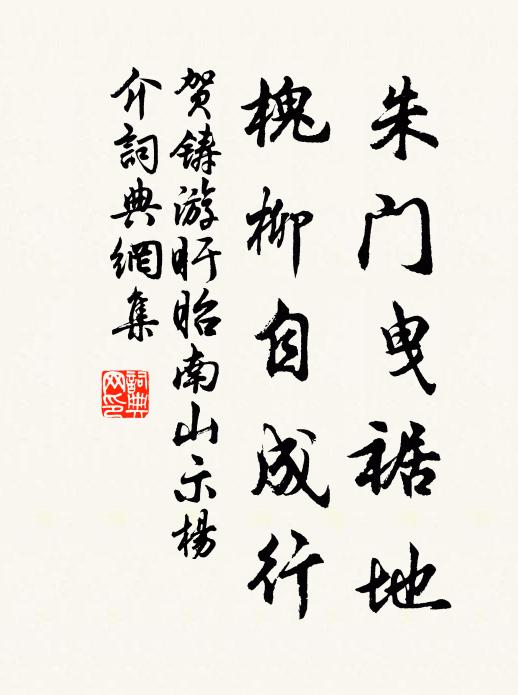 朱门曳裾地
槐柳自成行
贺鋳游盱眙南山示楊
介詞典網集
詞典
网印